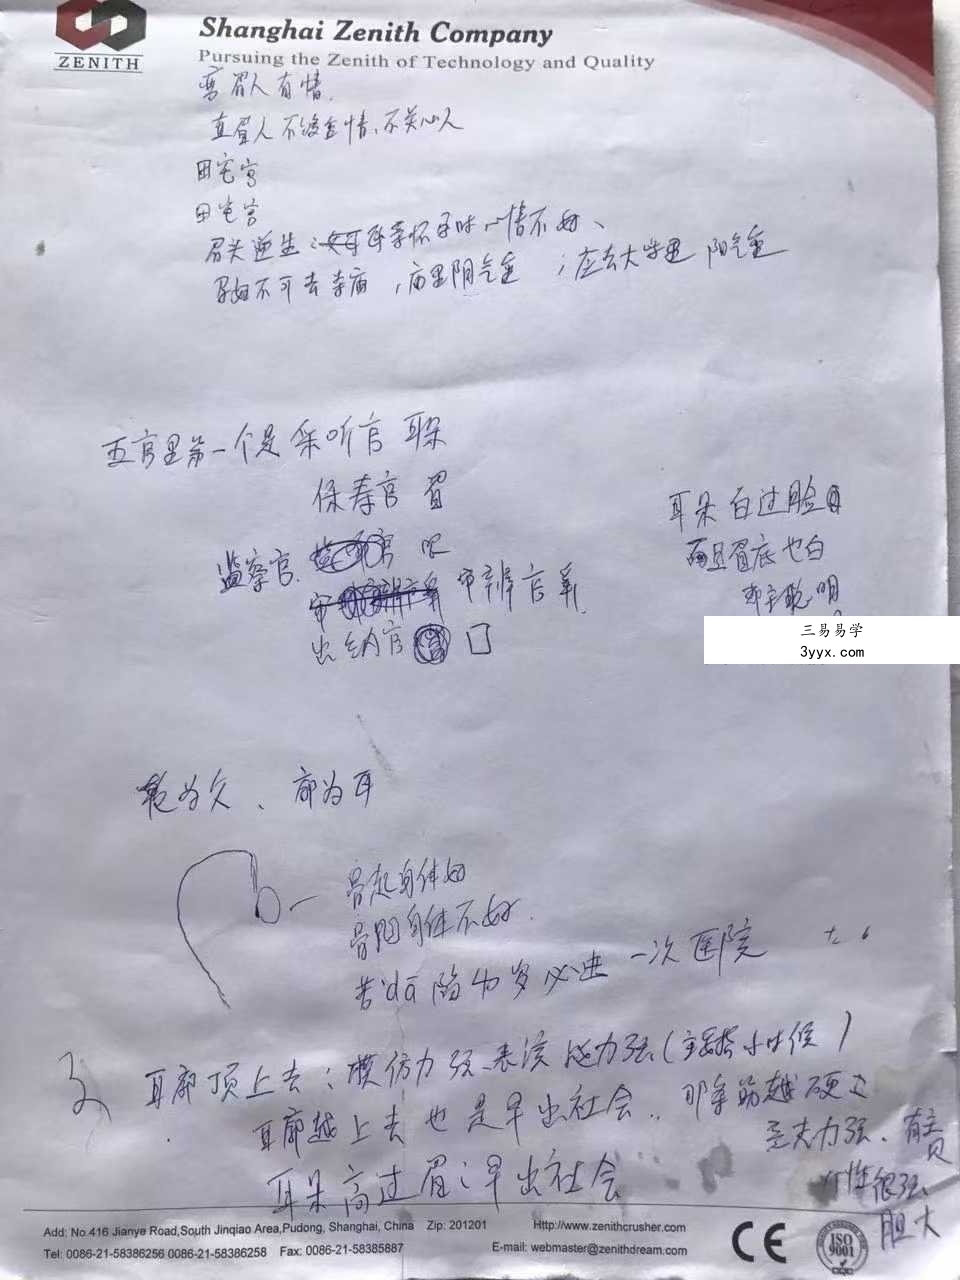 ZENITH
Shanghai Zenith Company
Pursuing the Zenith of Technology and Quality
弯眉人有情.
直眉人不 情、不关心人
田宅宫
田宅宫
眉头逆生: 母亲怀子时心情不好、
孕妇不可去寺庙,庙里阴气重;应去大学里 阳气重
五官里第一个是 采听官 耳朵
保寿官 眉
监察官. 官 眼
审辨官 鼻
出纳官 口
耳朵白过脸
而且眉底也白
都主聪明
三易易学
3yyx.com
轮为欠、廓为耳
骨起身体好
骨陷身体不好.
若 dā 陷 岁必进一次医院
耳廓顶上去:模仿力强、表演能力强(主 小时候)
耳廓越上去也是早出社会.. 那条筋越硬
耳朵高过眉:早出社会
力强、有主见
个性很强、
胆大
Add: No.416 Jianye Road,South Jinqiao Area,Pudong, Shanghai, China Zip: 201201 Http://www.zenithcrusher.com
Tel: 0086-21-58386256 0086-21-58386258 Fax: 0086-21-58385887 E-mail: webmaster@zenithdream.com
CE
ISO 9001